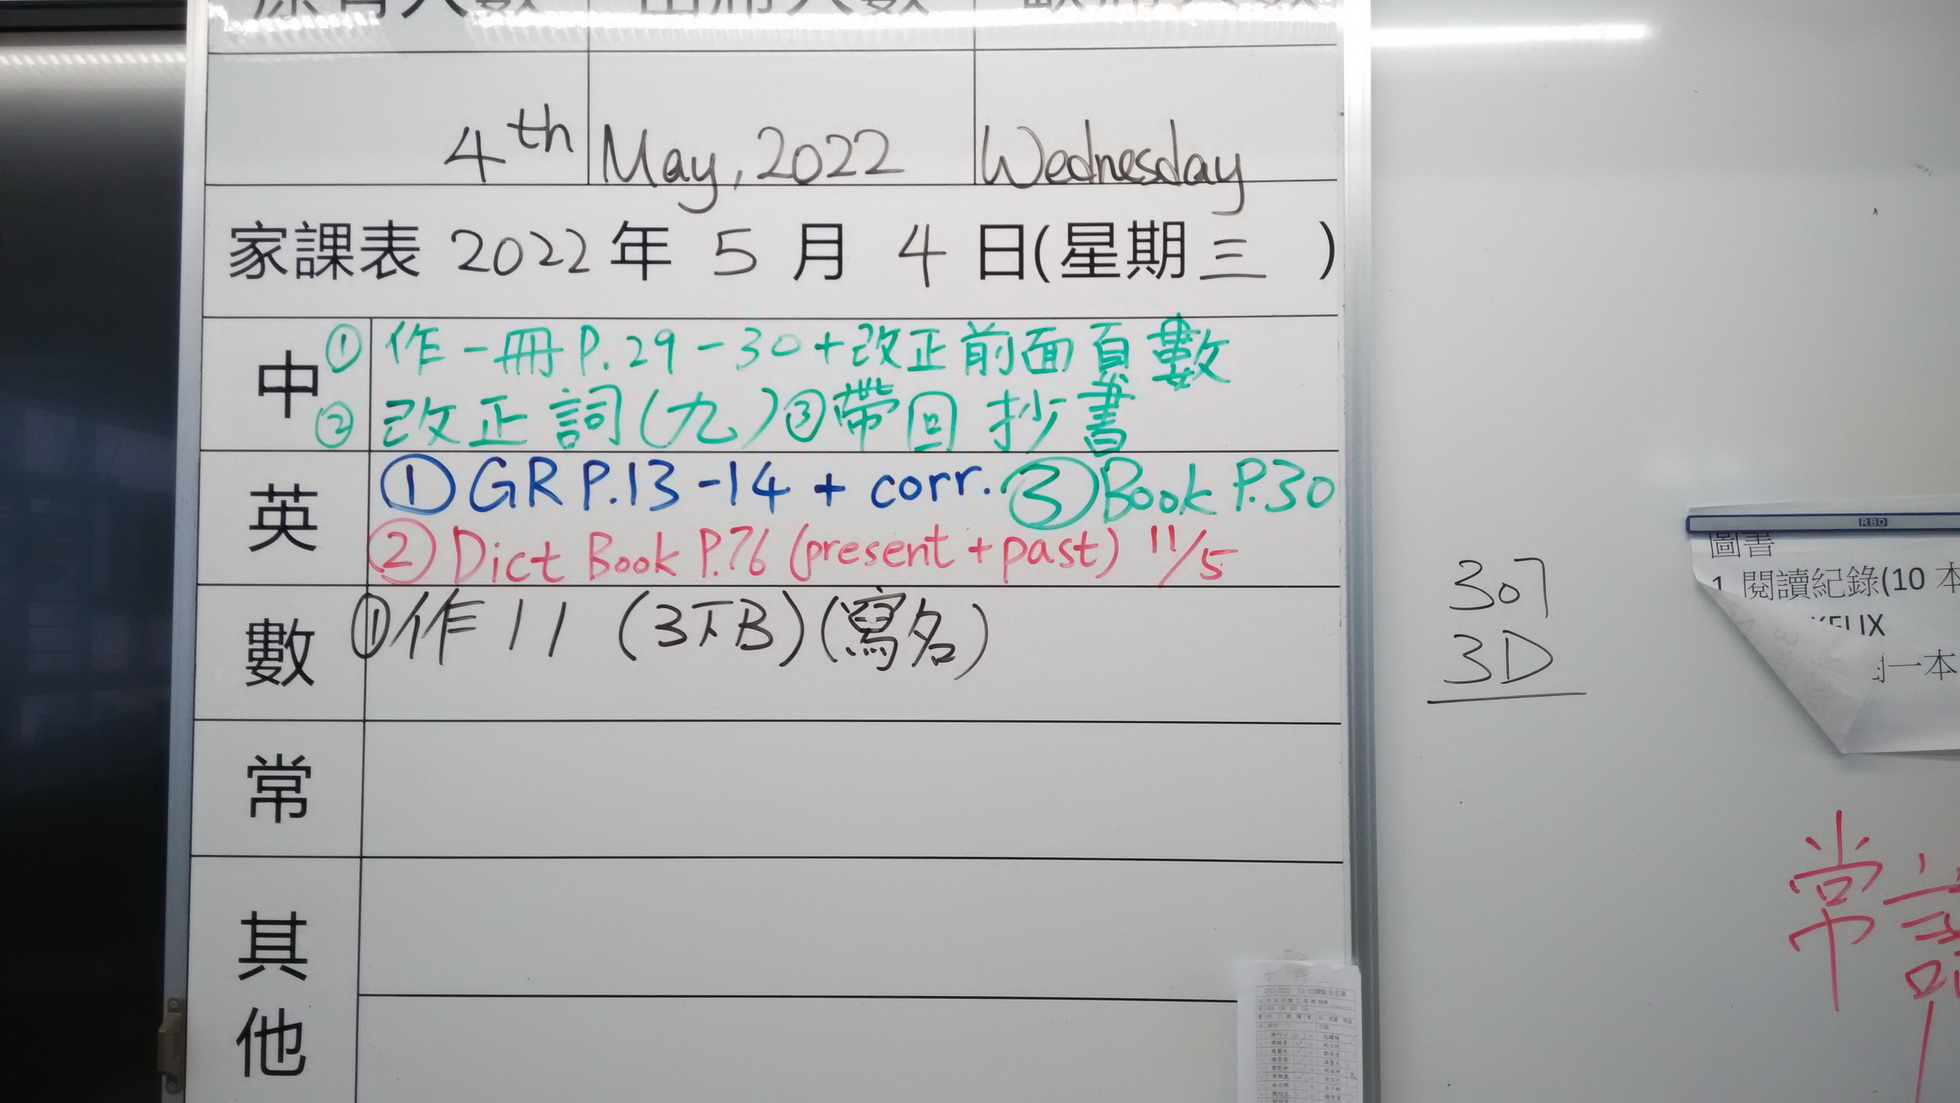 4th May, 2022 Wednesday
家課表 2022 年 5 月 4 日(星期三 )
中 ① 作一冊 P.29-30+改正前面頁數
② 改正詞(九) ③帶回抄書
英 ① GR P.13-14 + corr. ③ Book P.30
② Dict Book P.76 (present + past) 11/5
數 ① 作 11 (3下B)(寫名)
常
其
他
307
3D
RBD
圖書
1. 閱讀紀錄(10 本
一本
常